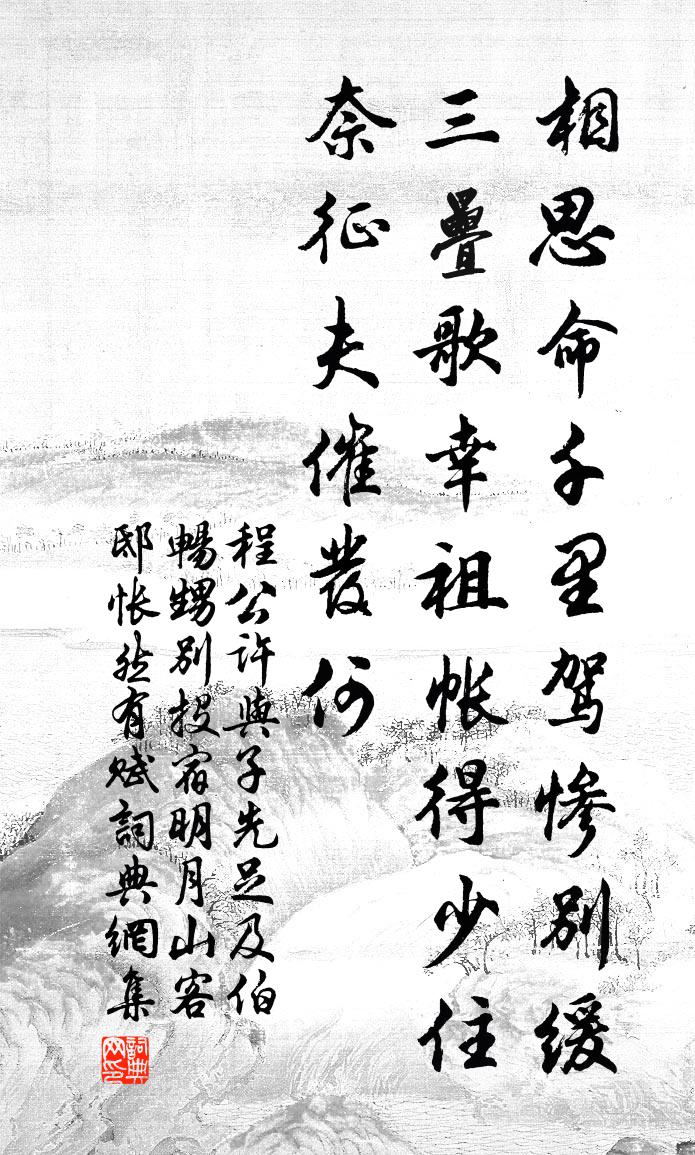 相思命千里駕惨別緩
三疊歌幸祖帳得少住
奈征夫催發何
程公許與子先足及伯
暢甥別投宿明月山客
邸悵然有賦詞典網集
詞典
网印